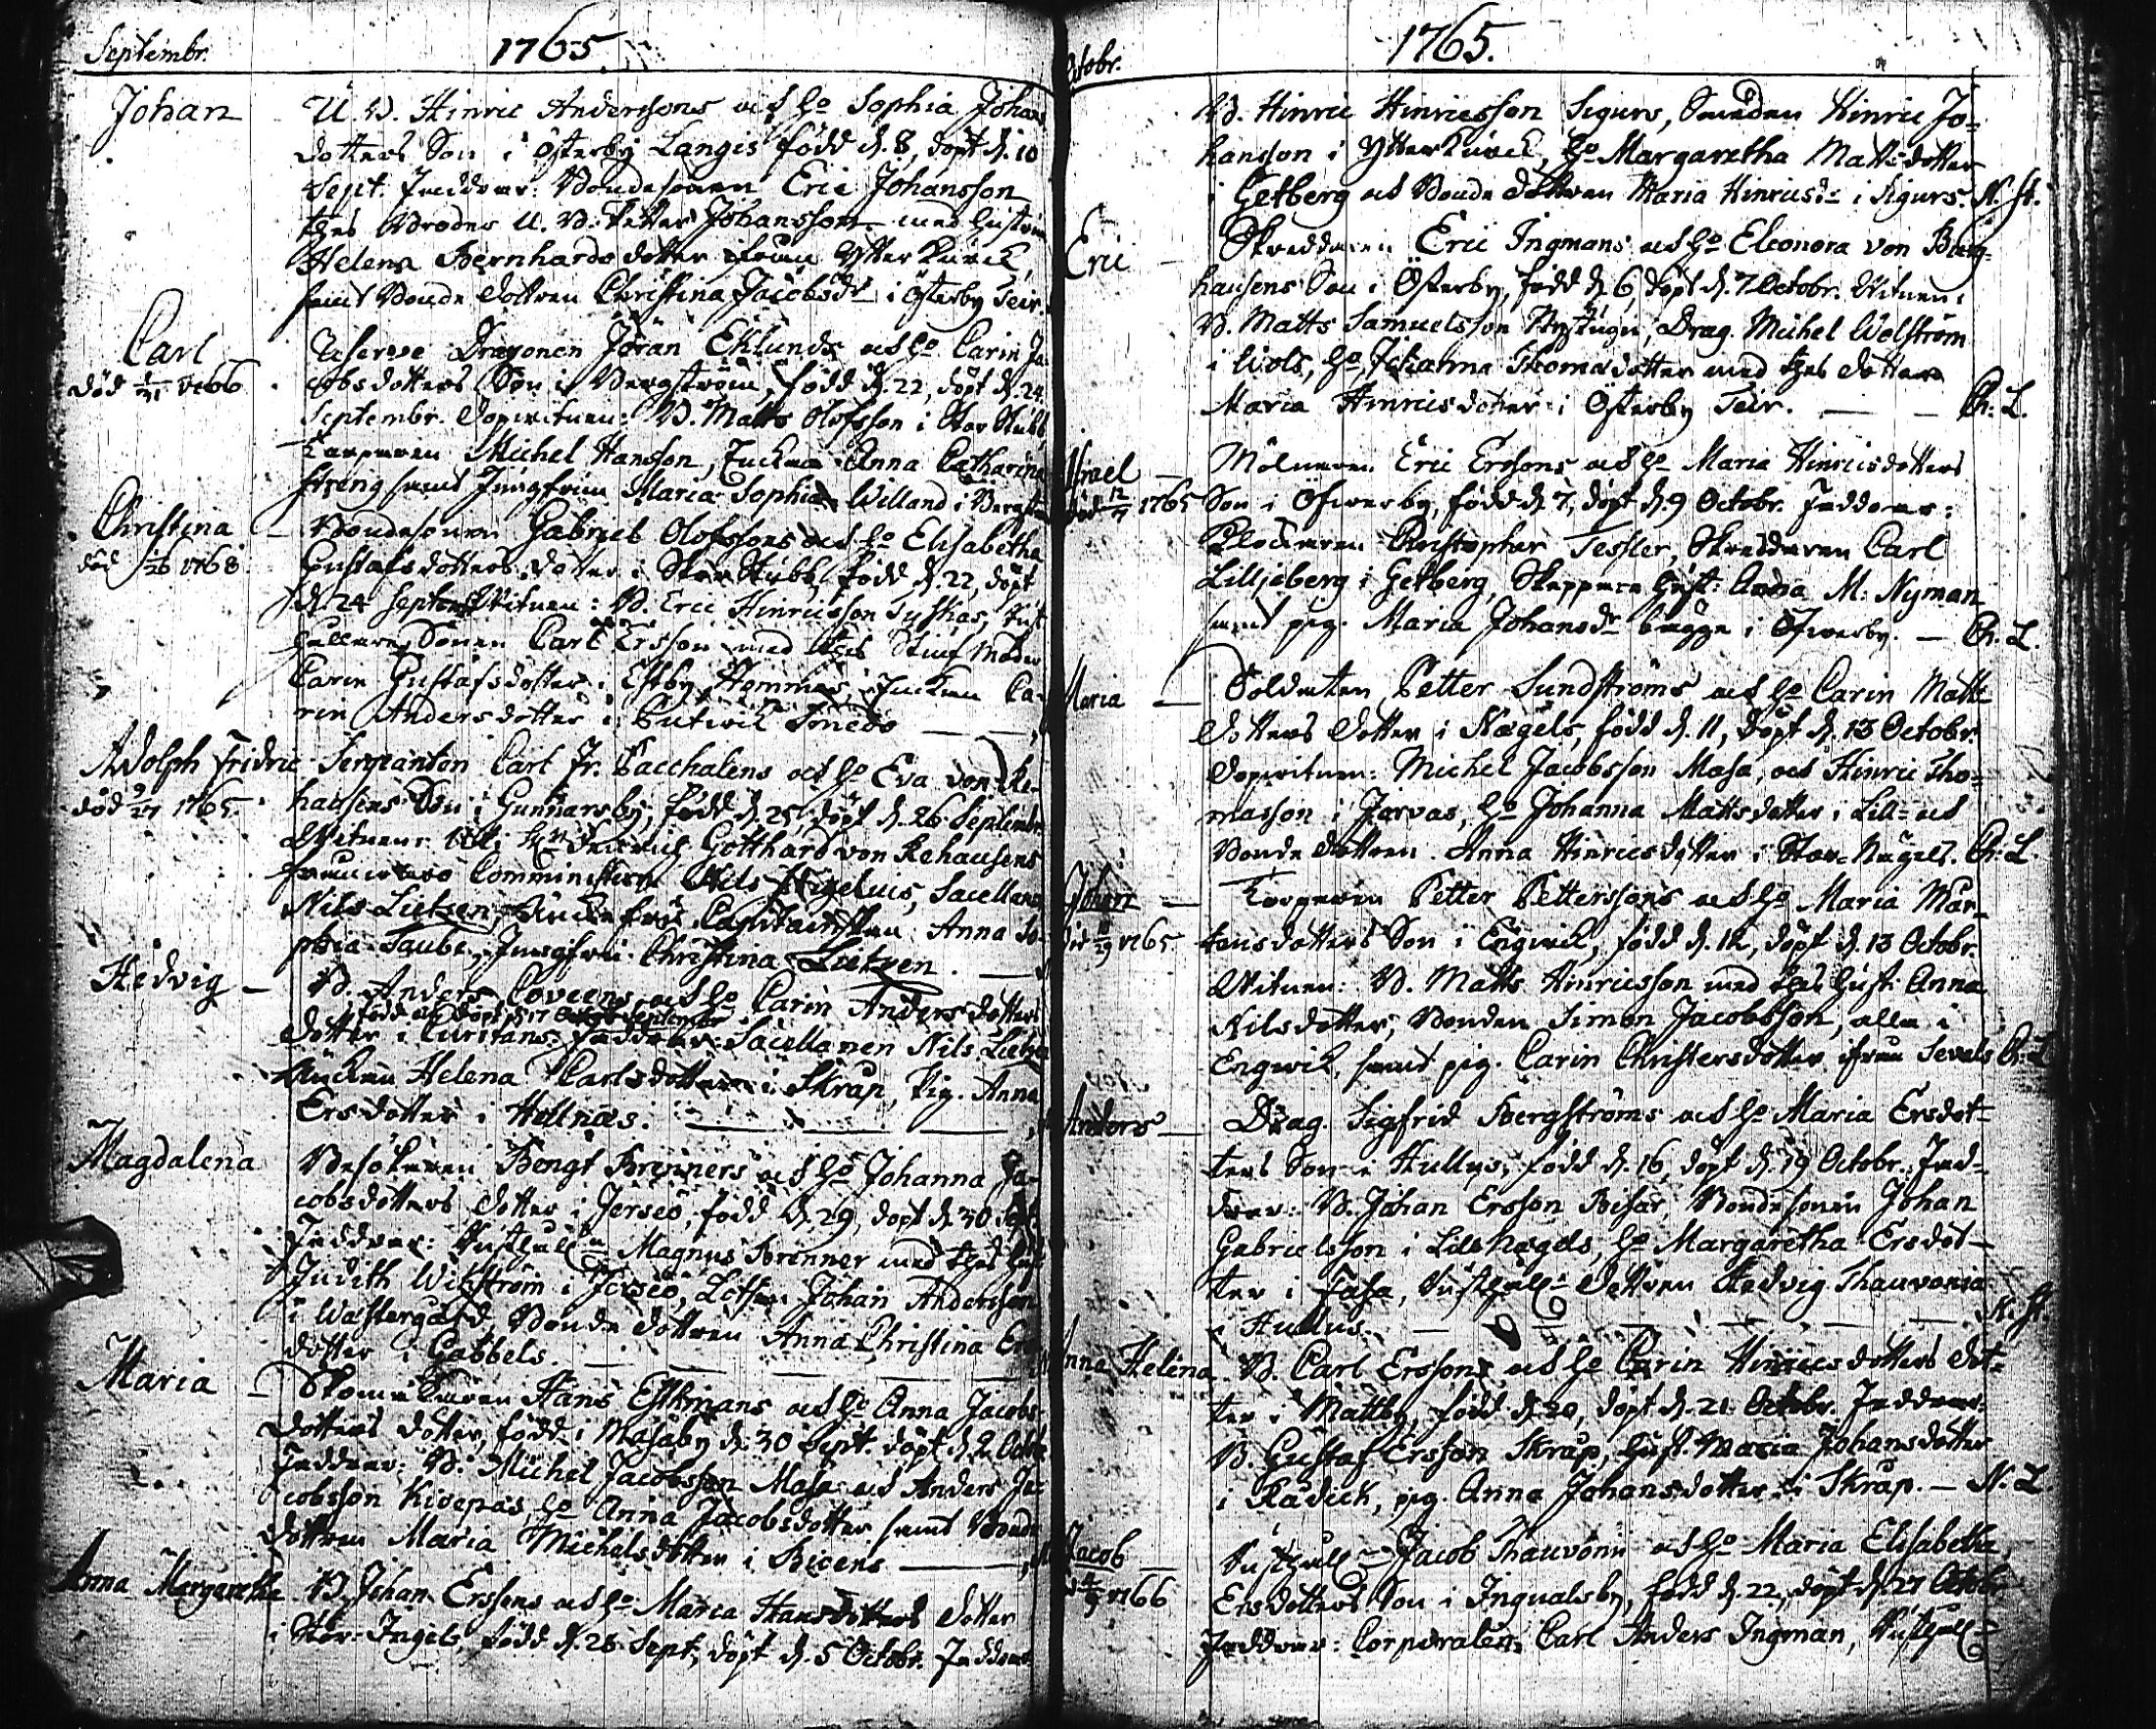 Septembr. 1765.
Johan U. B. Hinric Anderssons och ho Sophia Johans
dotters Son i Österby Langis född d. 8, döpt d. 10
Sept. Faddrar: Bondesonen Eric Johansson
thes Broder U. B. Petter Johansson med hustrun
Helena Bernhardsdotter ifrån Ytterkurck
samt Bonde dottren Christina Jacobsdr i Österby Teir.
Carl Reserve Dragonen Jöran Eklunds och ho Carin Ja-
död 1/31 1766. cobsdotters Son i Bergström, född d. 22, döpt d. 24
Septembr. Dopvitnen: B. Matts Olofsson i Stor Stubb
Torparen Michel Hansson, Enckan Anna Catharina
String samt Jungfrun Maria Sophia Willand i Bergström
Christina – Bondesonen Gabriel Olofssons och ho Elisabetha
död 1/26 1768. Gustafsdotters dotter i Stor Stubb, född d. 22, döpt
d. 24 Septemb. Vitnen: B. Eric Hinricsson Tuskas,
Sonen Carl Ersson med thes Stiuf Moder
Carin Gustafsdotter i Estby Hemmas, Enckan Ca-
rin Andersdotter i
Adolph Fridric Sergeanten Carl Fr. Pacchalens och ho Eva von Re-
död 9/27 1765. hausens Son i Gunnarsby, född d. 25, döpt d. 26 Septembr.
Vitnen: Gotthard von Rehausens
Comministern Nils Stigelius, Sacellanen
Nils Lietzen, Capitainskan Anna So-
phia Taube, Jungfru Christina Lietzen.
Hedvig – B. Anders Coveens och ho Carin Andersdotters
född och döpt d. 17 Septembr
dotter i Curstans. Faddrar: Sacellanen Nils Lietzen
Enckan Helena Carlsdotter i Skrap, Pig. Anna
Ersdotter i Hellnäs.
Magdalena Besökaren Bengt Brenners och ho Johanna Ja-
cobsdotters dotter i Jerseö, född d. 29, döpt d. 30 Sept.
Faddrar: Magnus Brenner med thes hust
Judith Wikström i Jerseö, Lotsen Johan Andersson
i Wästergård, Bonde dottren Anna Christina Ers
dotter i Gabbels.
Maria – Skomakaren Hans Estkmans och ho Anna Jacobs-
dotters dotter, född i Masaby d. 30 Sept. döpt d. 2 Octob.
Faddrar: B. Michel Jacobsson Masa och Anders Ja-
cobsson Kivepas, ho Anna Jacobsdotter samt Bonde
dottren Maria Michelsdotter i Bicens
Anna Margaretha B. Johan Erssons och ho Maria Hansdotters dotter
i Stor-Ingels, född d. 28 Sept, döpt d. 5 Octobr. Faddrar
Octobr. 1765.
B. Hinric Hinricsson Sigurs, Smeden Hinric Jo-
hansson i Ytterkurck, ho Margaretha Mattsdotter
i Getberg och Bonde dottren Maria Hinricsdr i Sigurs. N. St.
Eric – Skreddaren Eric Ingmans och ho Eleonora von Berg-
hausens Son i Österby, född d. 6, döpt d. 7 Octobr. Vitnen:
B. Matts Samuelsson Nystugu, Drag. Michel Wolström
i Wols, ho Johanna Thomasdotter med thes dotter
Maria Hinricsdotter i Österby Teir. – – Ch. L.
Israel – Mölnaren Eric Erssons och ho Maria Hinricsdotters
död 12/7 1765 Son i Öfwerby, född d. 7, döpt d. 9 Octobr. Faddrar:
Klockaren Christopher Tessler, Skreddaren Carl
Lilljeberg i Getberg, Skeppare hust. Anna M. Nyman
samt pig. Maria Johansdr bägge i Öfwerby. – Ch. L.
Maria – Soldaten Petter Sundströms och ho Carin Matts-
dotters dotter i Nägels, född d. 11, döpt d. 13 Octobr.
Dopvitnen: Michel Jacobsson Masa, och Hinric Tho-
masson i Jervas, ho Johanna Mattsdotter i Lill- och
Bonde dottren Anna Hinricsdotter i Stor-Nägels. Ch. L.
Johan – Torparen Petter Petterssons och ho Maria Mår-
död 10/29 1765. tensdotters Son i Engwik, född d. 12, döpt d. 13 Octobr.
Vitnen: B. Matts Hinricsson med thes hust. Anna
Nilsdotter, Bonden Simon Jacobsson, alla i
Engwik, samt pig. Carin Christersdotter ifrån Sevals Ch. L.
Anders – Drag. Sigfrid Bergströms och ho Maria Ersdot-
ters Son i Hullus, född d. 16, döpt d. 19 Octobr. Fad-
drar: B. Johan Ersson Bisar, Bondesonen Johan
Gabrielsson i Lill Nägels, ho Margaretha Ersdot-
ter i Fasa, dottren Hedvig Thauvonia
i Hullus. – – – N. St.
Anna Helena. B. Carl Erssons och ho Carin Hinricsdotters dot-
ter i Mattby, född d. 20, döpt d. 21 Octobr. Faddrar:
B. Gustaf Ersson Skrap, hust. Maria Johansdotter
i Rädick, pig. Anna Johansdotter i Skrap. – N. L.
Jacob – Jacob Thauvonii och ho Maria Elisabetha
1766 Ersdotters Son i Ingvalsby, född d. 22, döpt d. 27 Octobr
Faddrar: Corporalen Carl Anders Ingman,